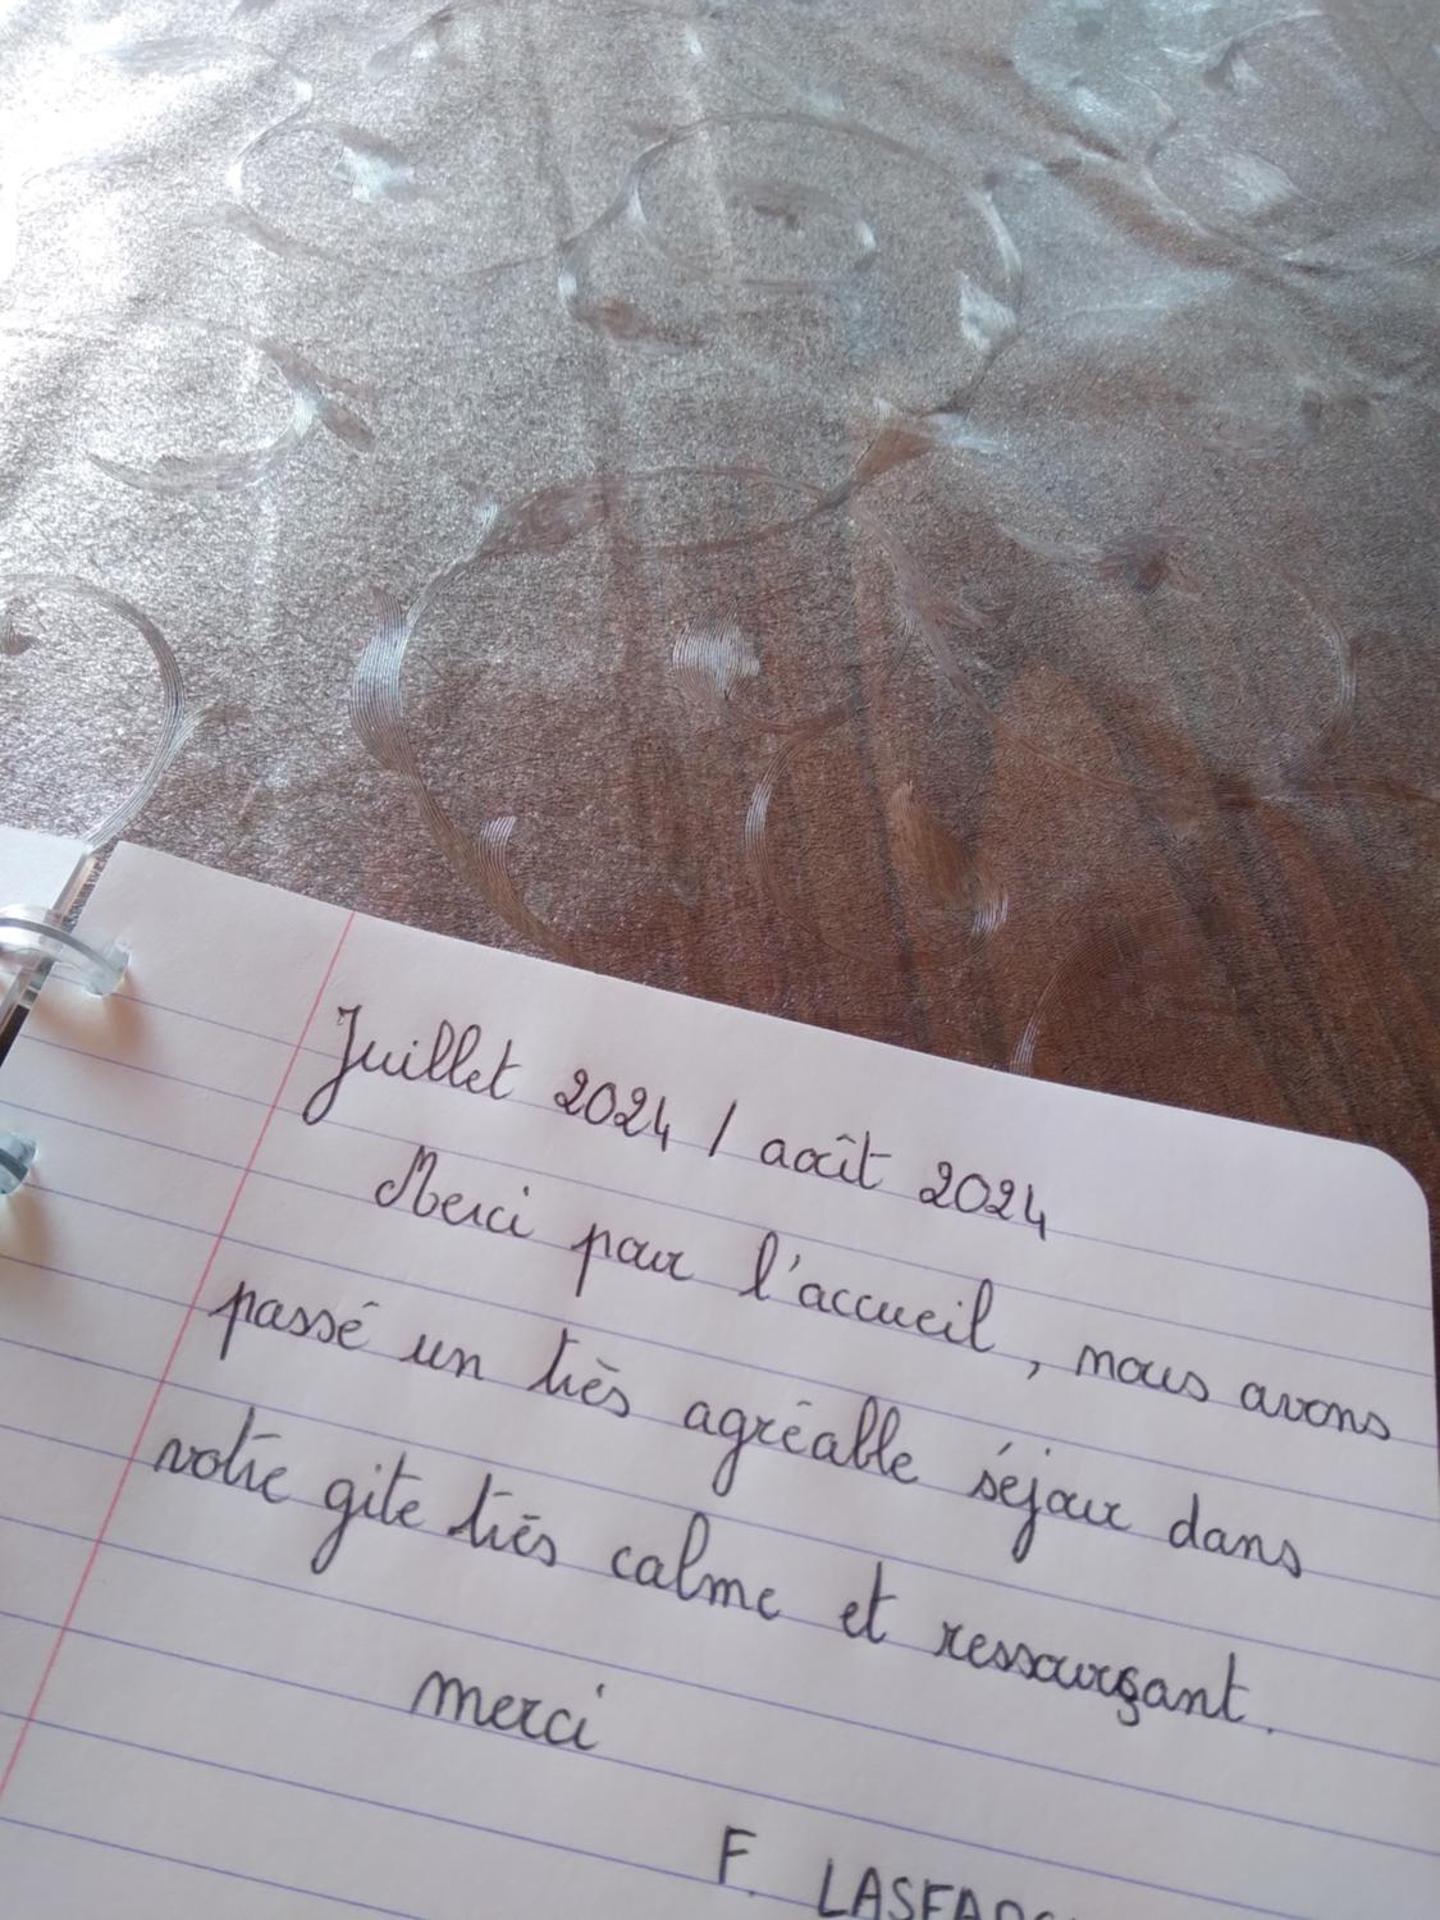 Juillet 2024 / août 2024
Merci pour l'accueil, nous avons
passé un très agréable séjour dans
votre gite très calme et ressourçant.
merci
F.